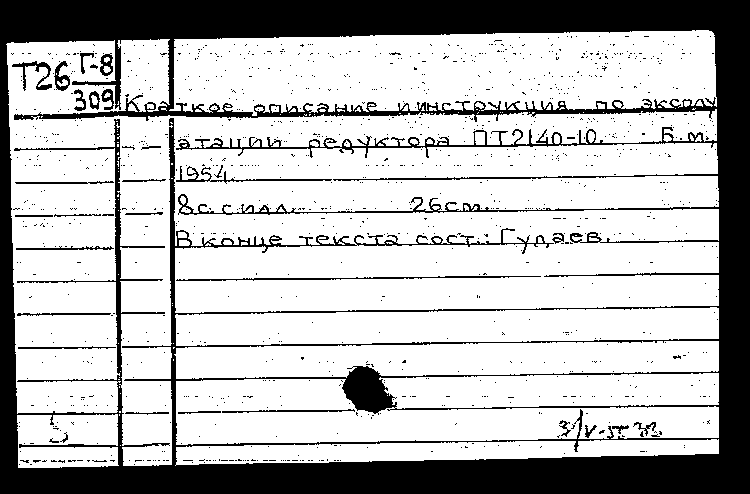 Т26 Г-8
309
Краткое описание и инструкция по эксплу
атации редуктора ПТ2140-10. Б.м.,
1954.
8с. с илл. 26см.
В конце текста сост.: Гудаев.